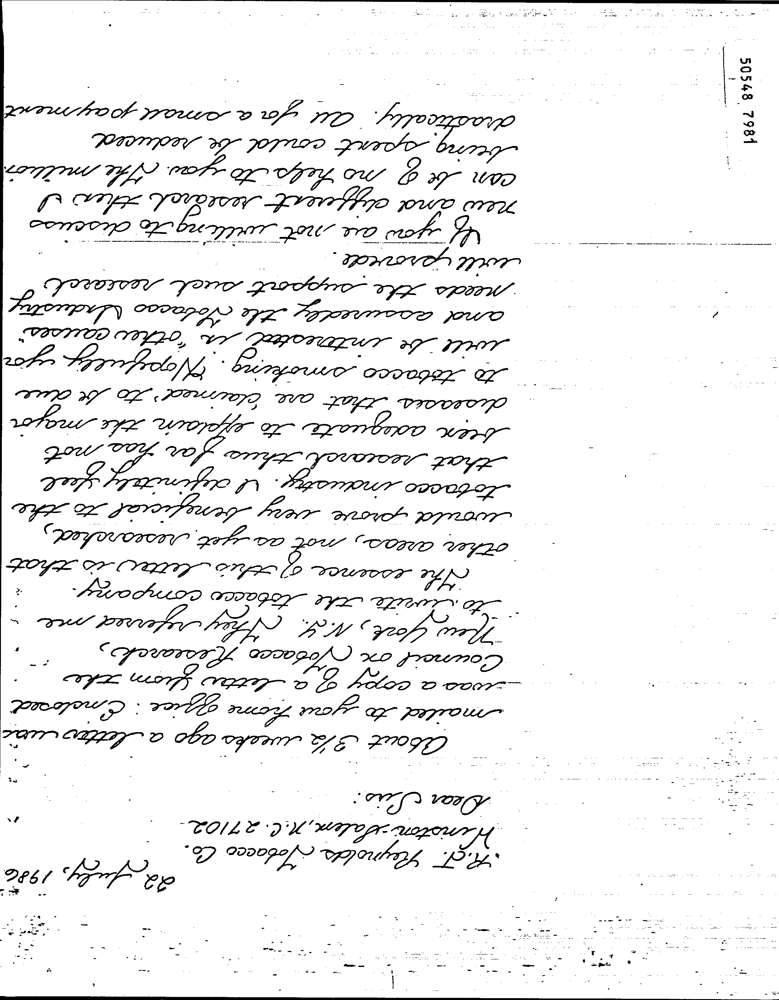 22 July, 1986
R.J. Reynolds Tobacco Co.
Winston-Salem, N.C. 27102
Dear Sirs:
About 3½ weeks ago a letter was
mailed to your home office. Enclosed
was a copy of a letter from the
Council on Tobacco Research,
New York, N.Y. They referred me
to write the tobacco company.
The essence of this letter is that
other areas, not as yet researched,
would prove very beneficial to the
tobacco industry. I definitely feel
that research thus far has not
been adequate to explain the major
diseases that are "claimed" to be due
to tobacco smoking. Hopefully you
will be interested in "other causes"
and assuredly the Tobacco Industry
needs the support such research
will provide.
If you are not willing to discuss
new and different research then I
can be of no help to you. The million
being spent could be reduced
drastically. All for a small payment
50548 7981